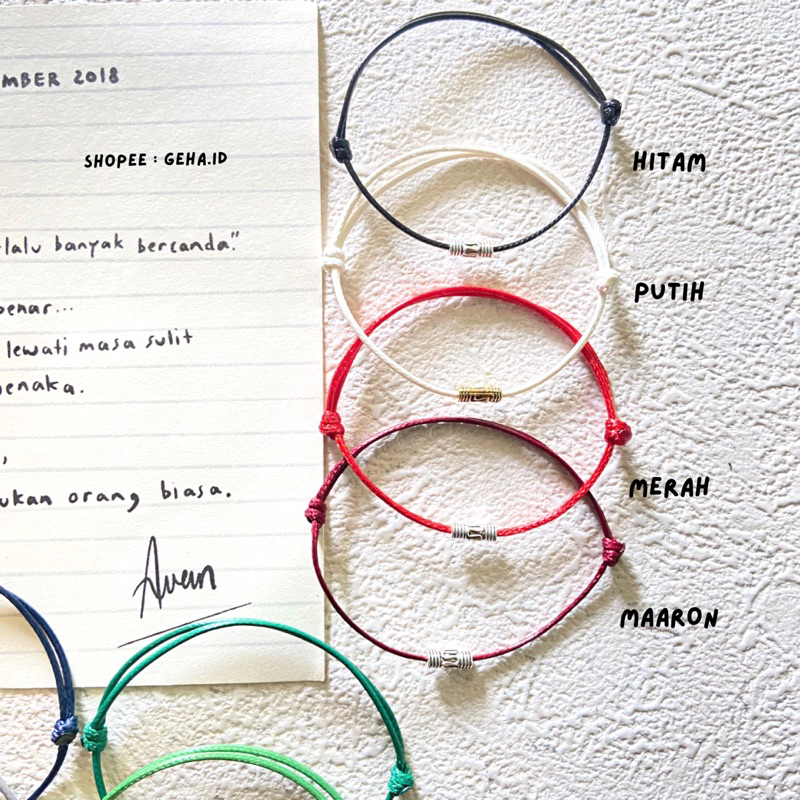 MBER 2018
SHOPEE : GEHA.ID
lalu banyak bercanda."
benar...
lewati masa sulit
enaka.
,
ukan orang biasa.
Avem
HITAM
PUTIH
MERAH
MAARON